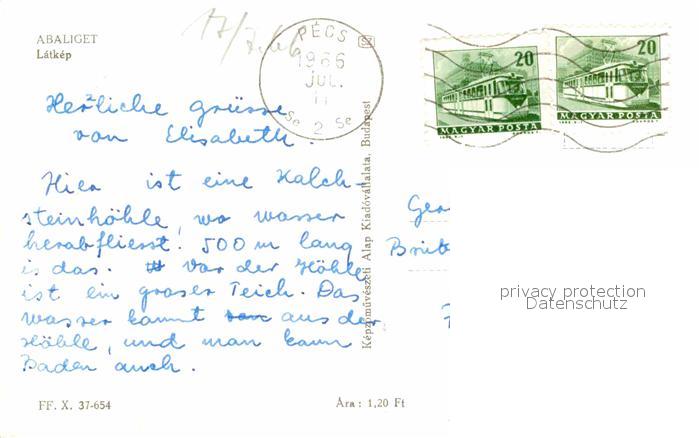 ABALIGET
Látkép
17/7.66
PÉCS
1966
JUL.
11
Se 2 Se
20
20
MAGYAR POSTA
MAGYAR POSTA
Herzliche grüsse
von Elisabeth.
Hier ist eine Kalch-
steinhöhle, wo wasser
herabfliesst. 500 m lang
is das. Vor der Höhle
ist ein groser Teich. Das
wasser kommt aus der
Höhle, und man kann
Baden auch.
Képzőművészeti Alap Kiadóvállalata, Budapest
privacy protection
Datenschutz
FF. X. 37-654
Ára: 1,20 Ft